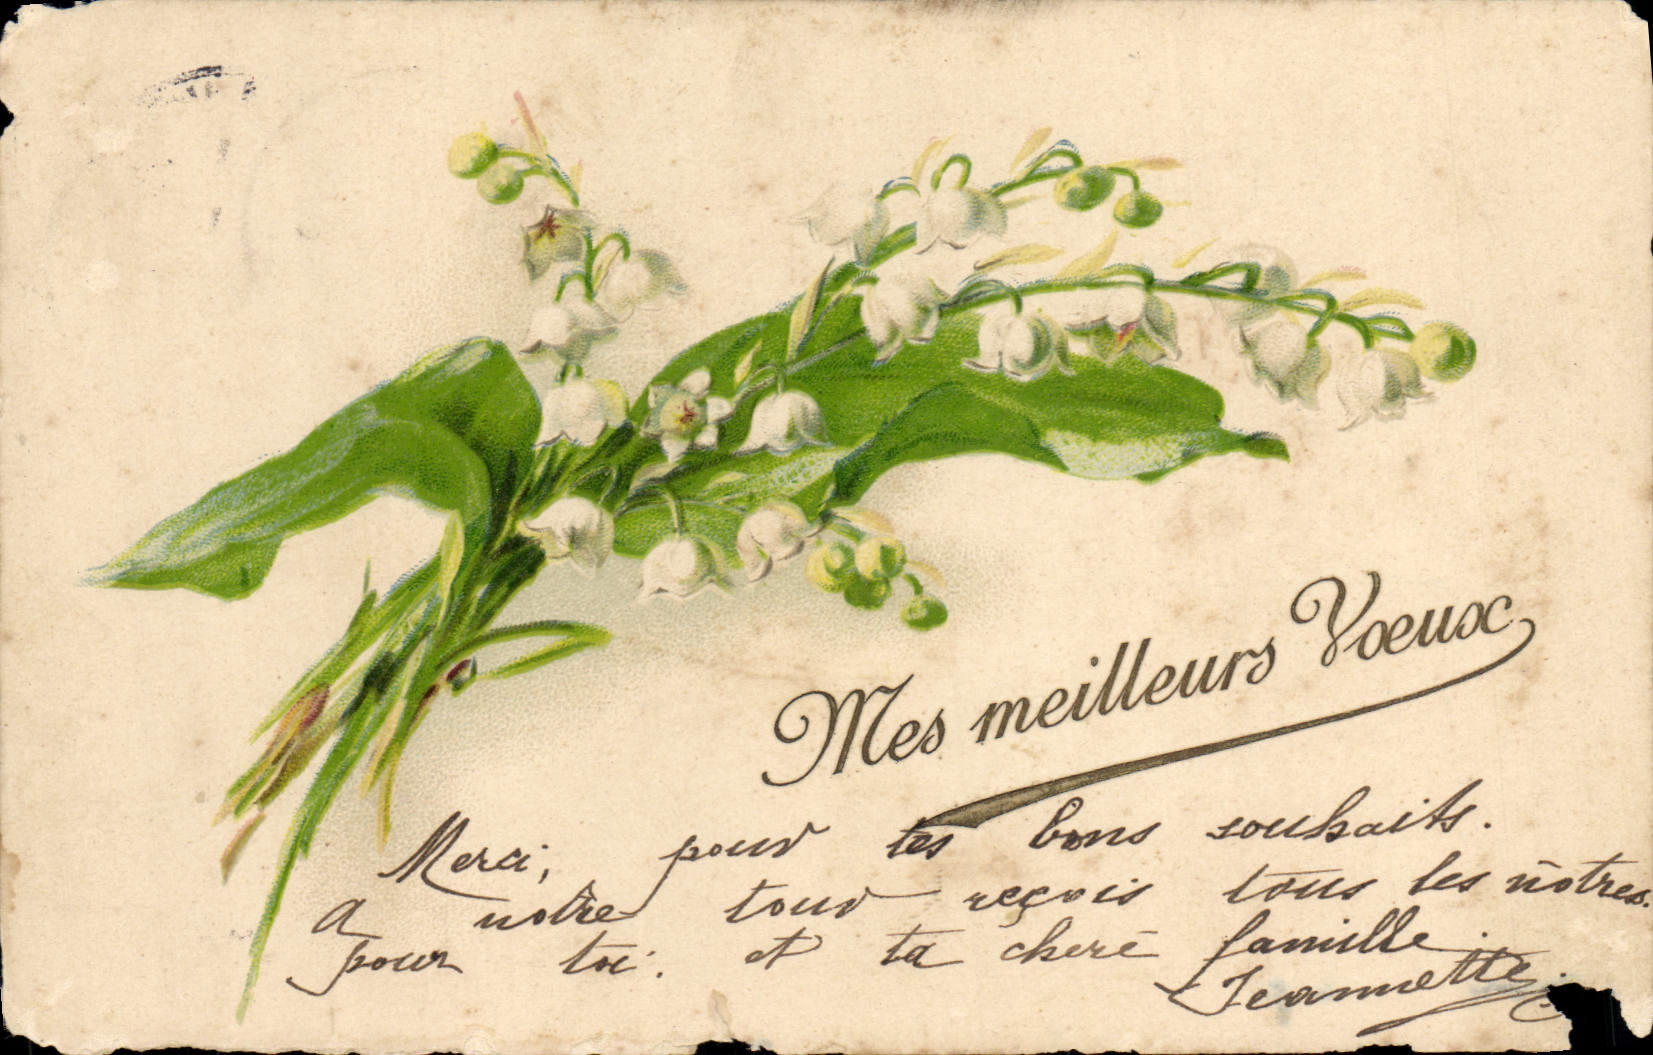 Mes meilleurs Vœux
Merci, pour tes bons souhaits.
a notre tour reçois tous les nôtres.
pour toi. et ta cheré famille.
Jeannette